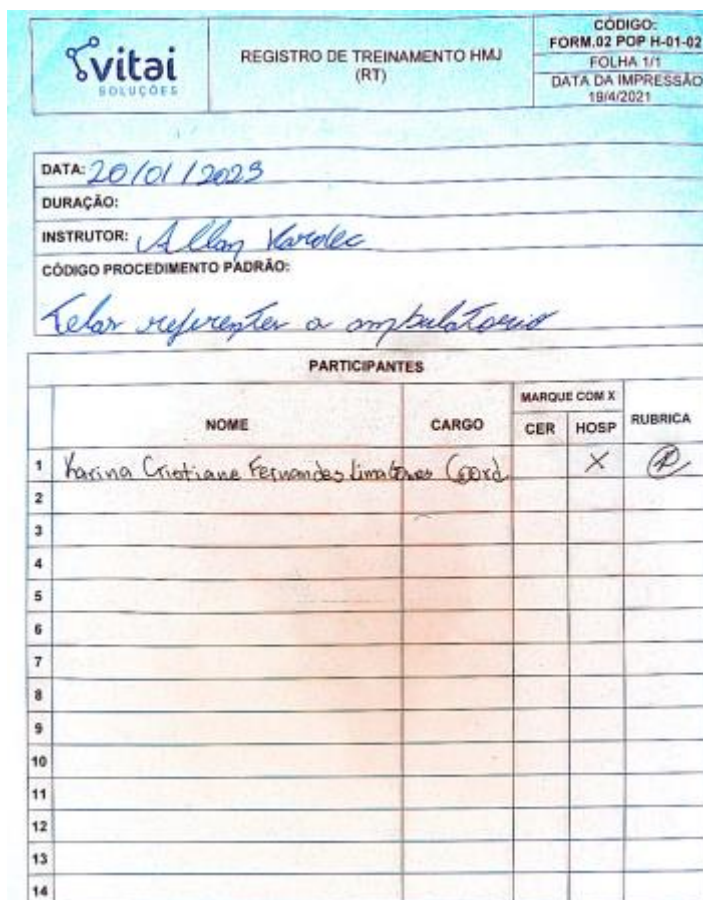 vitai
SOLUÇÕES
REGISTRO DE TREINAMENTO HMJ
(RT)
CÓDIGO:
FORM.02 POP H-01-02
FOLHA 1/1
DATA DA IMPRESSÃO
19/4/2021
DATA: 20/01/2023
DURAÇÃO:
INSTRUTOR: Allan Kardec
CÓDIGO PROCEDIMENTO PADRÃO:
Telas referentes a ambulatorio
PARTICIPANTES
NOME CARGO MARQUE COM X RUBRICA
CER HOSP
1 Karina Cristiane Fernandes Lima Coord X
2
3
4
5
6
7
8
9
10
11
12
13
14